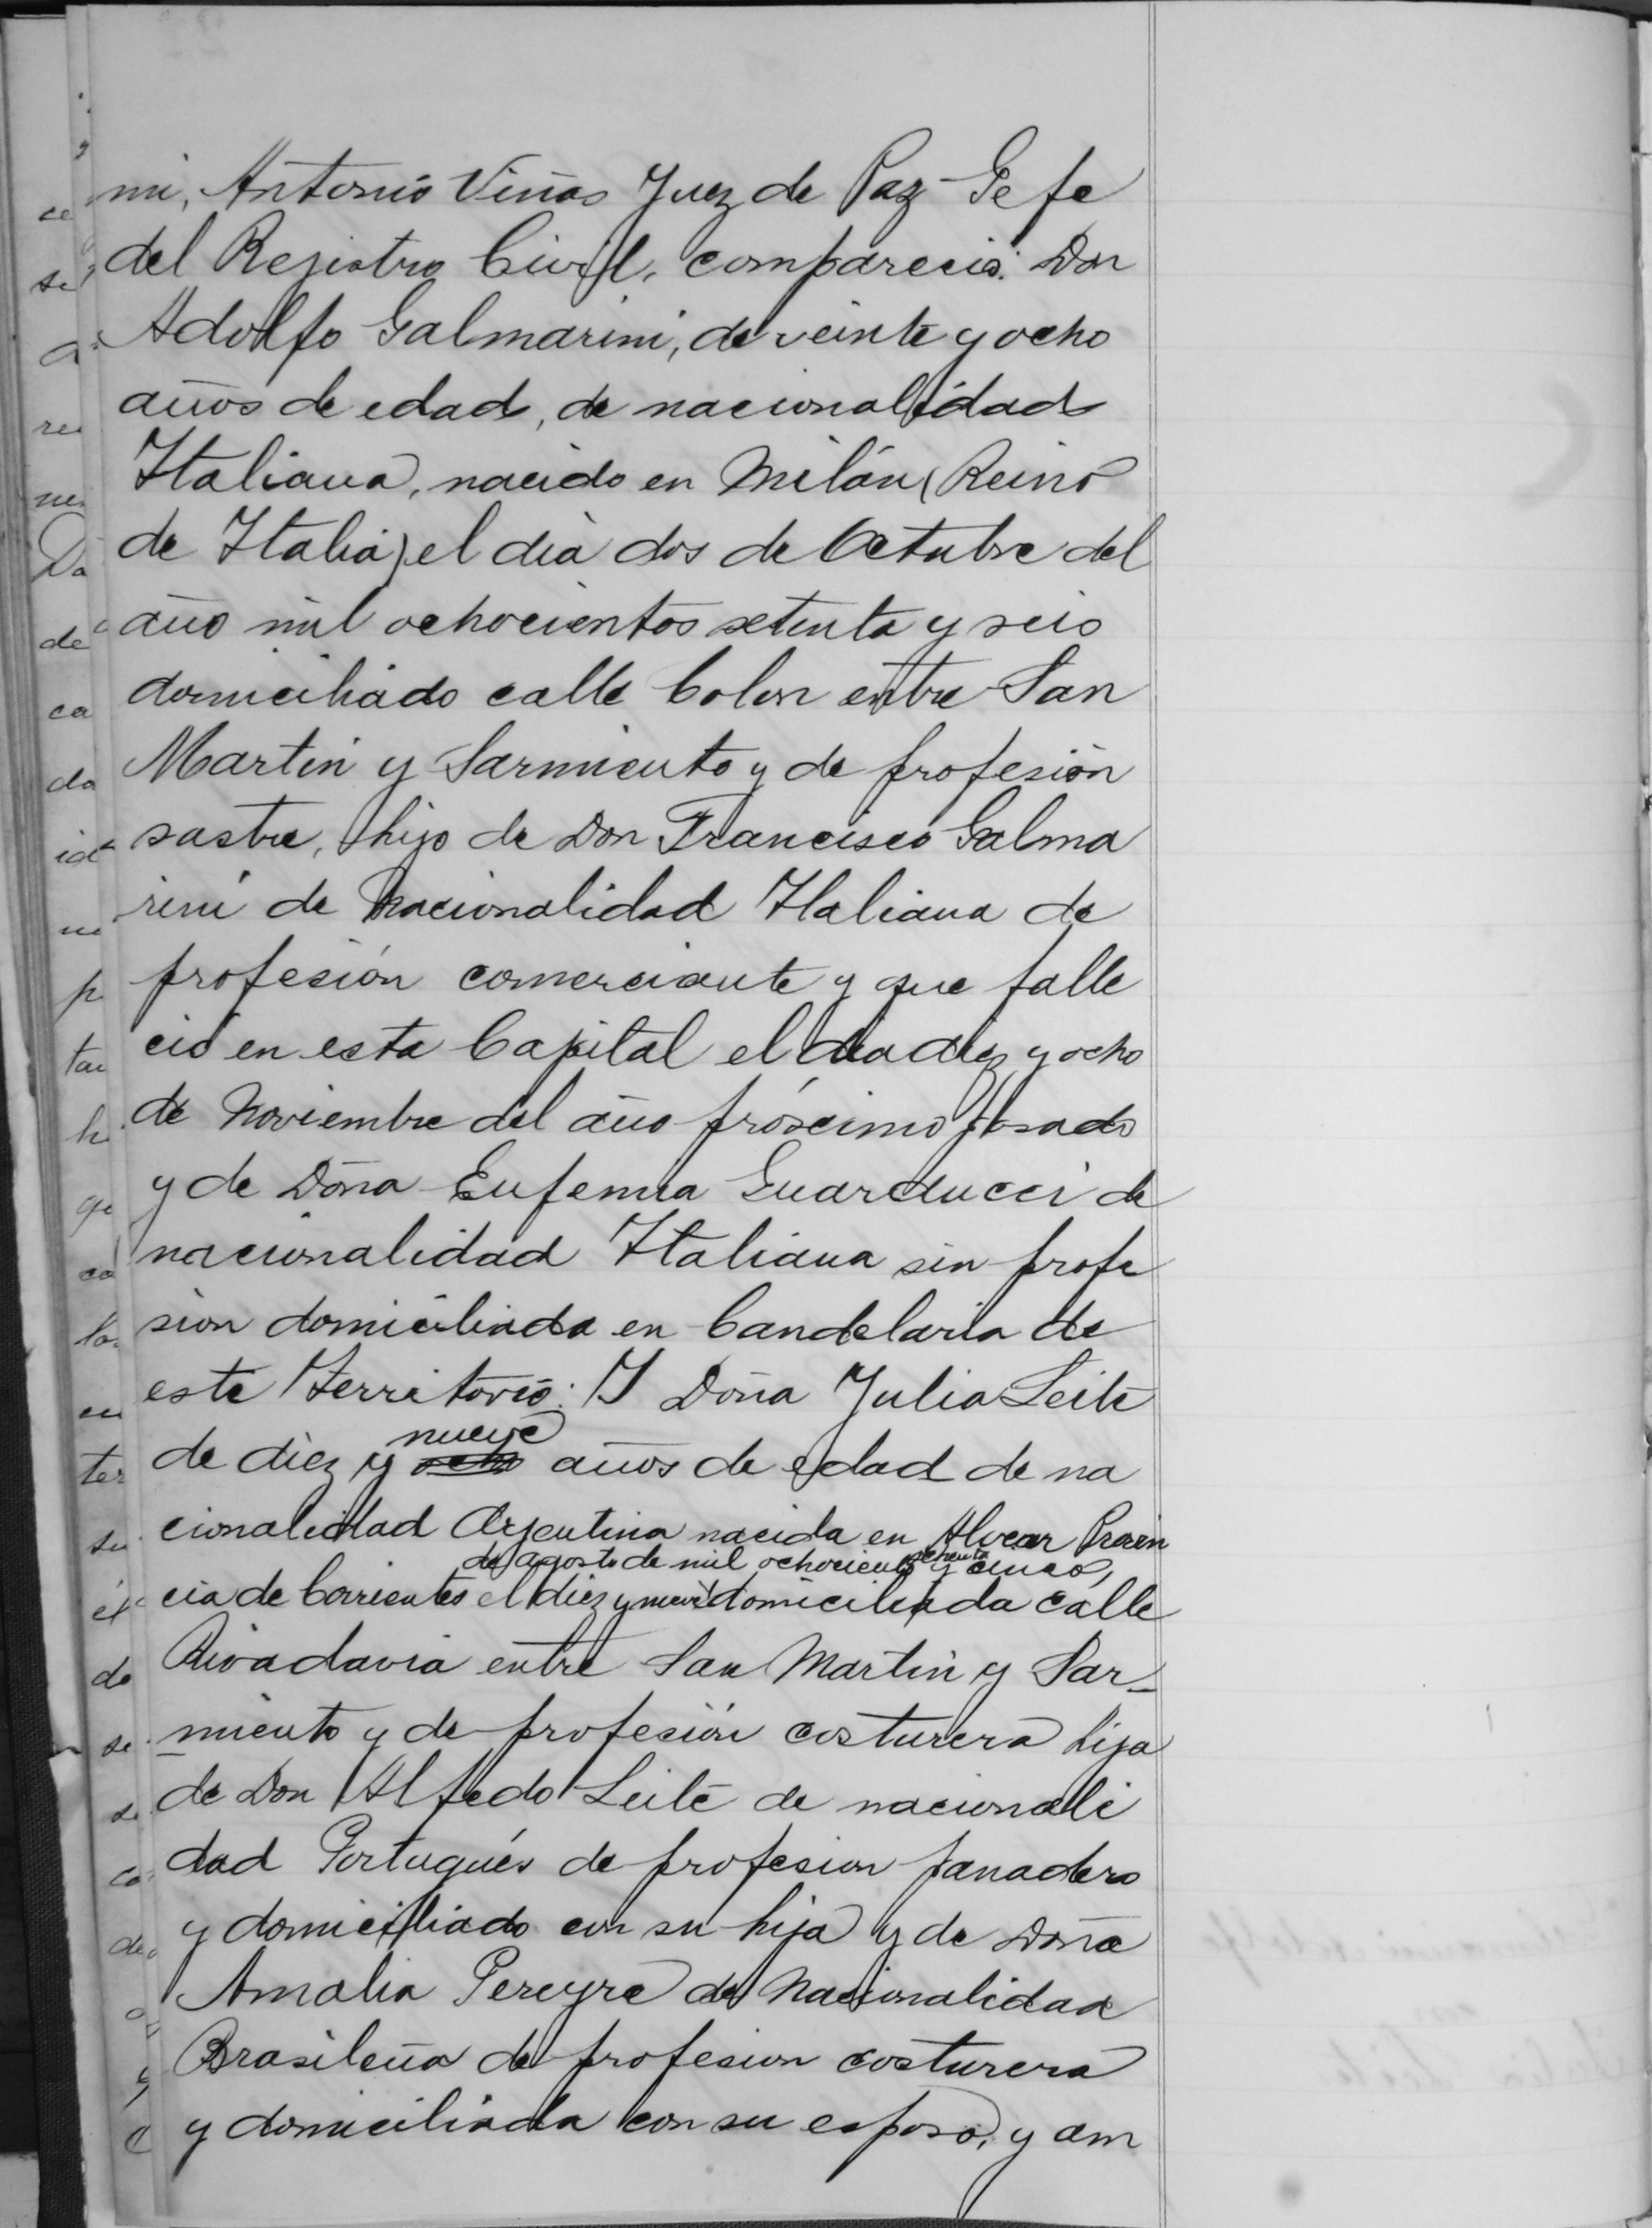 mi, Antonio Viñas Juez de Paz Gefe
del Rejistro Civil, compareció: Don
Adolfo Galmarini, de veinte y ocho
años de edad, de nacionalidad
Italiana, nacido en Milán (Reino
de Italia) el dia dos de Octubre del
año mil ochocientos setenta y seis
domiciliado calle Colon entre San
Martin y Sarmiento y de profesión
sastre, hijo de Don Francisco Galma
rini de Nacionalidad Italiana de
profesión comerciante y que falle
ció en esta Capital el dia diez y ocho
de Noviembre del año próximo pasado
y de Doña Eufemia Guarducci de
nacionalidad Italiana sin profe
sion domiciliada en Candelaria de
este Territorio: Y Doña Julia Leite
nueve
de diez y ocho años de edad de na
cionalidad Argentina nacida en Alvear Provin
de agosto de mil ochocientos ochenta y cinco,
cia de Corrientes el diez y nueve domiciliada calle
Rivadavia entre San Martin y Sar_
miento y de profesión costurera hija
de Don Alfedo Leite de nacionali
dad Portugués de profesion panadero
y domiciliado con su hija y de Doña
Amalia Pereyra de Nacionalidad
Brasileña de profesion costurera
y domiciliada con su esposo, y am